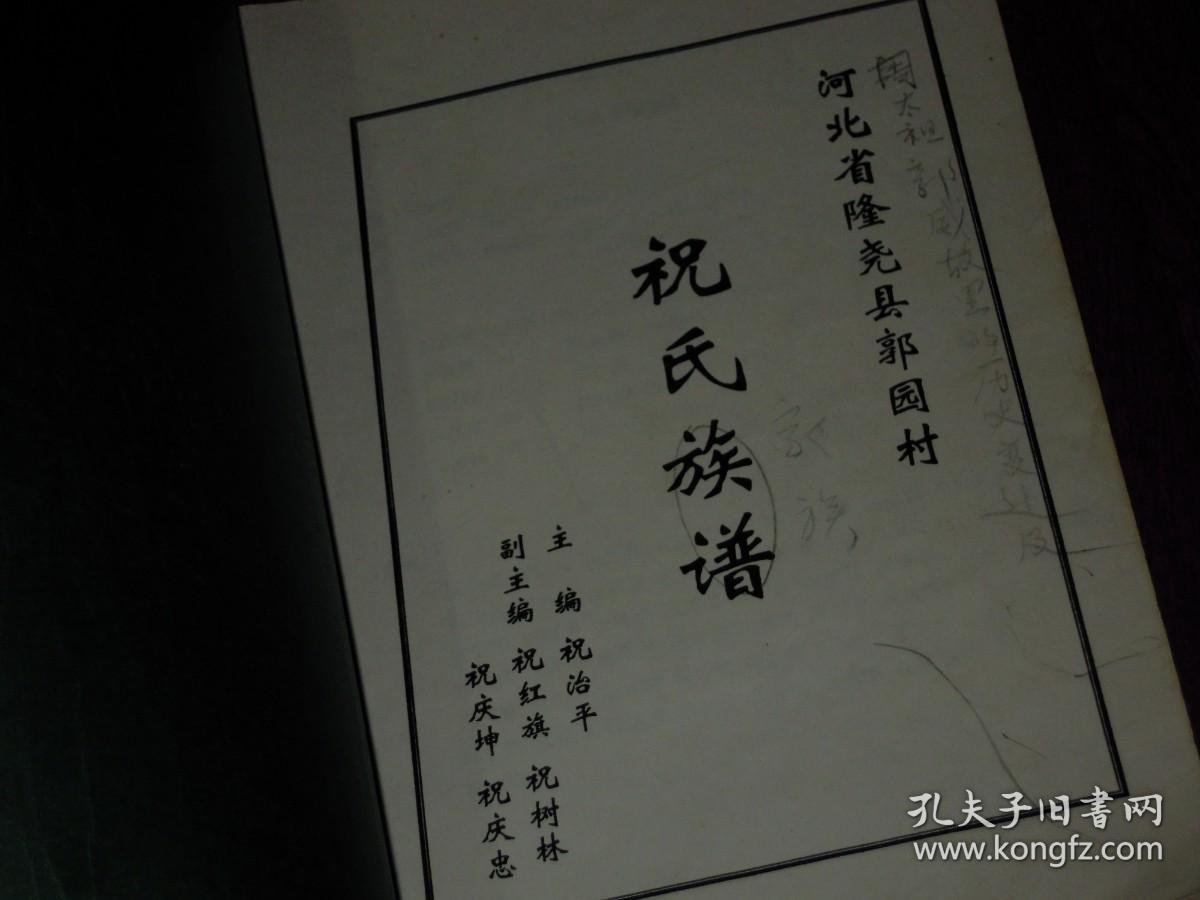 周太祖郭威故里的历史变迁及
河北省隆尧县郭园村
家族
祝氏族谱
主编 祝治平
副主编 祝红旗 祝树林
祝庆坤 祝庆忠
孔夫子旧书网
www.kongfz.com